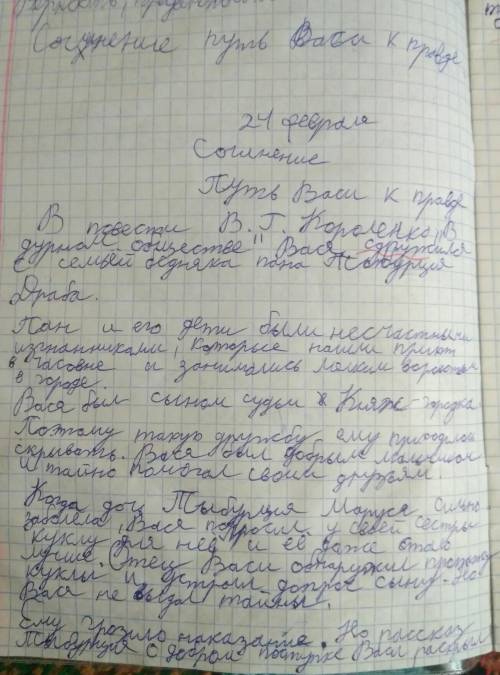 Сочинение путь Васи к правде
24 февраля
Сочинение
Путь Васи к правде
В повести В. Г. Короленко „В
дурном обществе" Вася сдружился
с семьёй бедняка пана Тыбурция
Драба.
Пан и его дети были несчастными
изгнанниками, которые нашли приют
в часовне и занимались мелким воровством
в городе.
Вася был сыном судьи в Княж-городке
Поэтому такую дружбу ему приходилось
скрывать. Вася был добрым мальчиком
и тайно помогал своим друзьям.
Когда дочь Тыбурция Маруся сильно
заболела, Вася попросил у своей сестры
куклу для неё и ей даже стало
лучше. Отец Васи обнаружил пропажу
куклы и устроил допрос сыну. Но
Вася не выдал тайны.
Ему грозило наказание. Но рассказ
Тыбурция о добром поступке Васи раскрыл